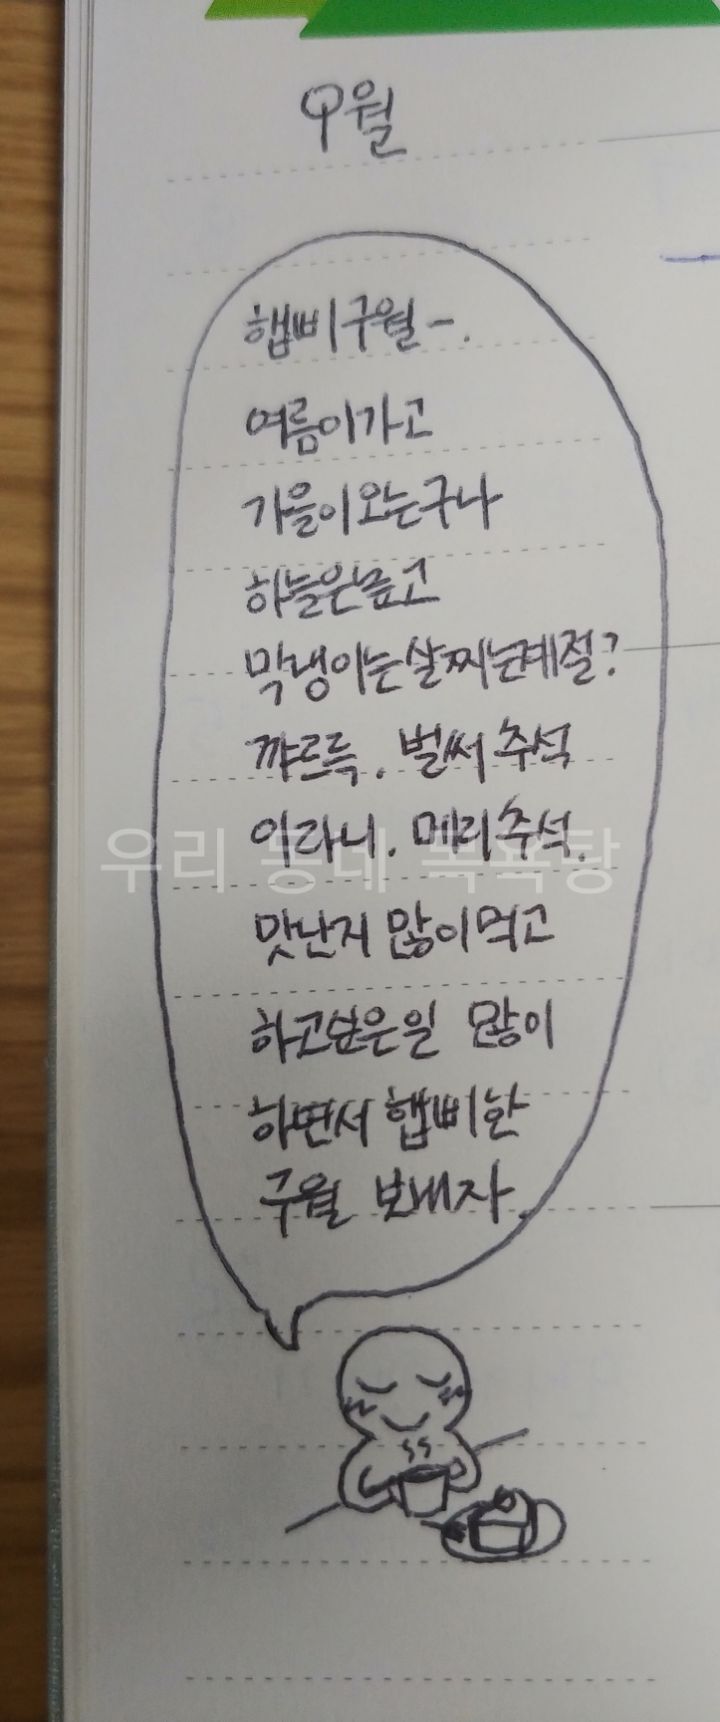 9월
햅삐구월-.
여름이가고
가을이오는구나
하늘은높고
막냉이는살찌는계절?
꺄르륵. 벌써 추석
이라니. 메리추석.
우리 동네 목욕탕
맛난거 많이먹고
하고싶은일 많이
하면서 햅삐한
구월 보내자.